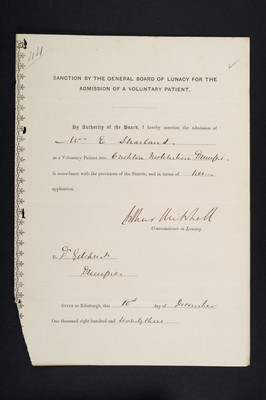 SANCTION BY THE GENERAL BOARD OF LUNACY FOR THE
ADMISSION OF A VOLUNTARY PATIENT.
By Authority of the Board, I hereby sanction the admission of
Mrs E
as a Voluntary Patient into Crichton Institution Dumfries
in accordance with the provisions of the Statute, and in terms of her
application.
Arthur Mitchell
Commissioner in Lunacy.
To Dr Gilchrist
Dumfries
GIVEN at Edinburgh, this 10th day of December
One thousand eight hundred and seventy three